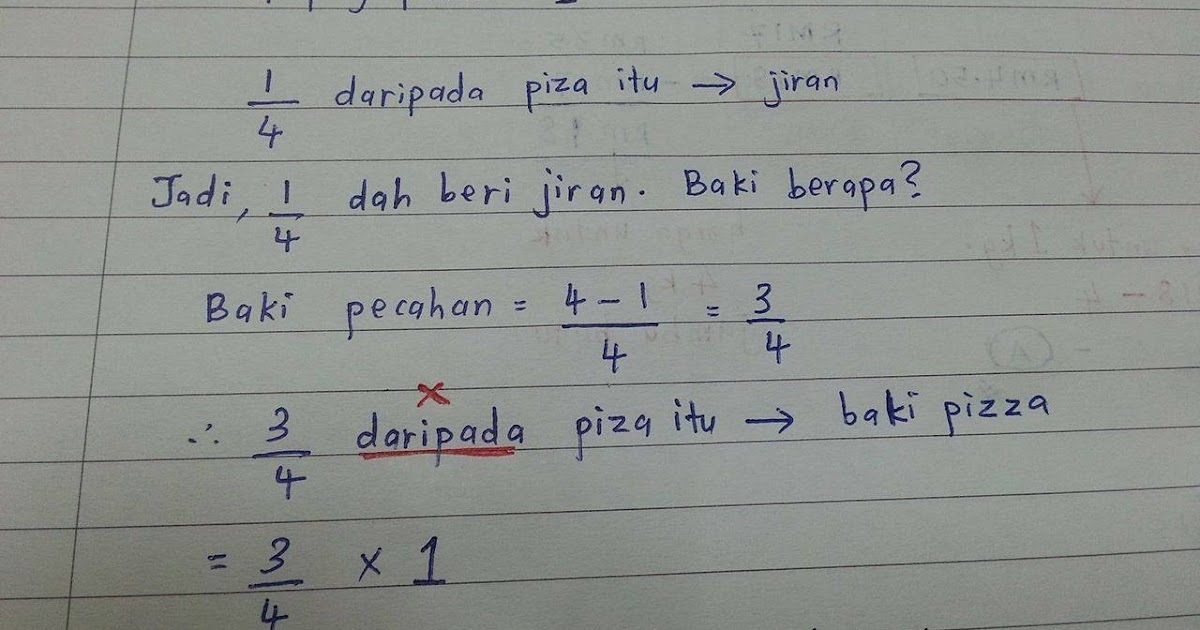 1/4 daripada piza itu → jiran
Jadi, 1/4 dah beri jiran. Baki berapa?
Baki pecahan = (4 - 1)/4 = 3/4
×
∴ 3/4 daripada piza itu → baki pizza
= 3/4 × 1